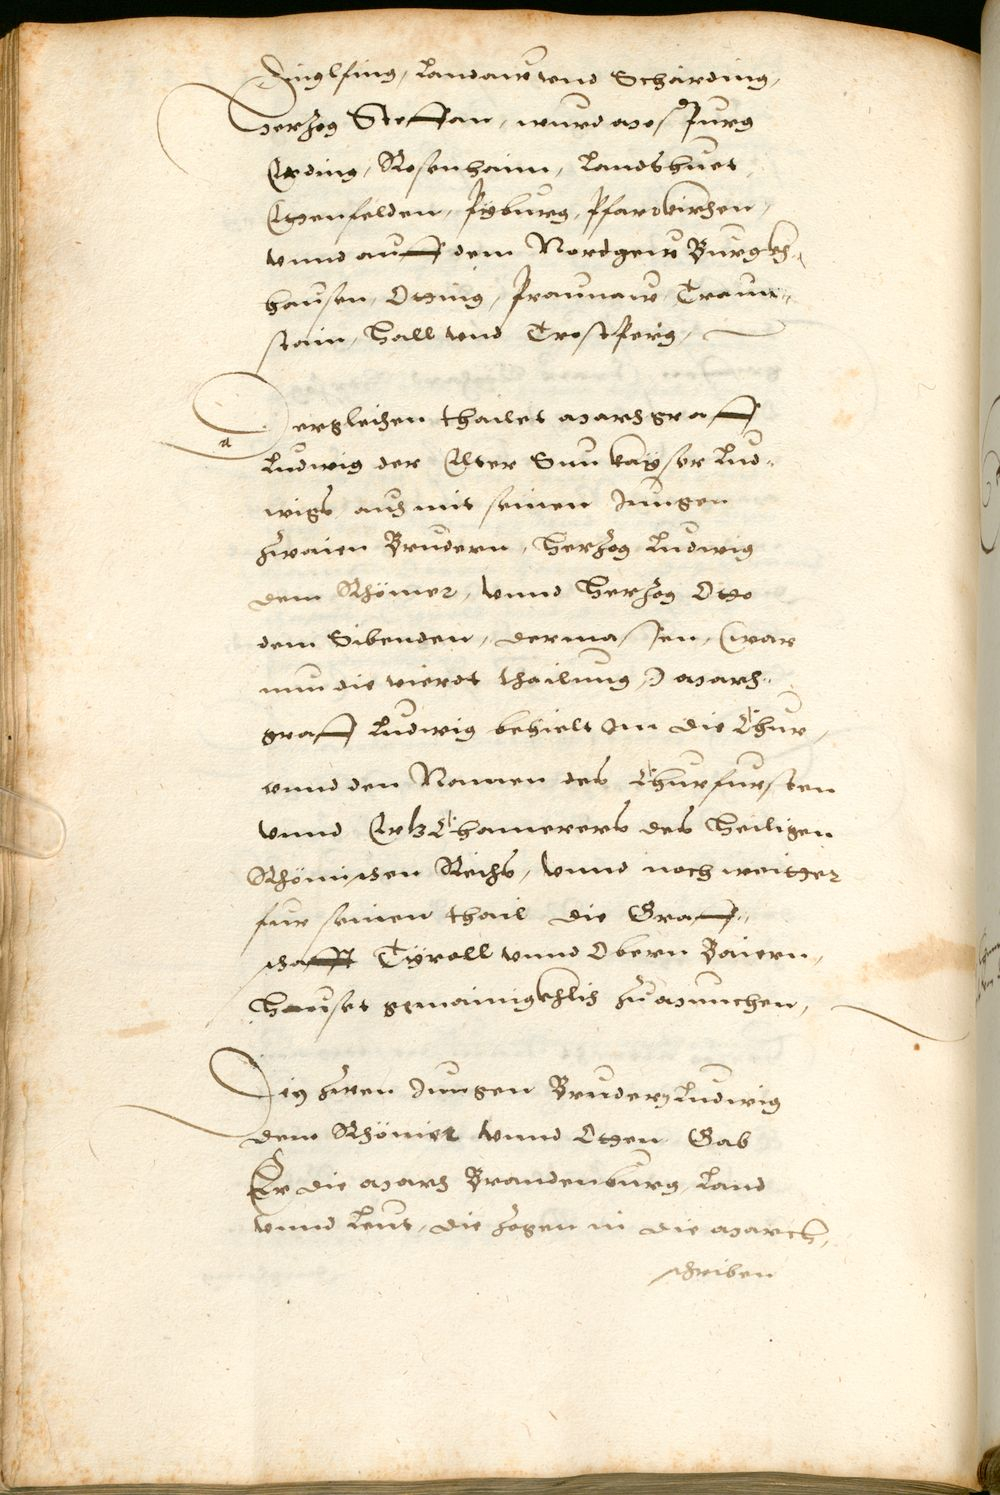 Dinglfing, Landaw vnd Schärding,
Herzog Steffan, wurd Mospurg
Erding, Rosenhaim, Landshuet,
Egenfelden, Pyburg, Pfarrkirchen,
vnnd auff dem Nordgew Burgkh-
hausen, Otting, Praunaw, Traun-
stain, Hall vnd Trostperg,
Dergleichen thailet Marchgraff
a
Ludwig der Elter Sun kayser Lud-
wigs auch mit seinen Jungen
zwaien Brudern, Herzog Ludwig
dem Rhömer, vnnd Herzog Otto
dem Sibenden, dermassen, (war
nun die vierdt thailung,) March-
graff Ludwig behielt Im die Chur,
vnnd den Namen des Churfursten
vnnd ErtzChamerers des Heiligen
Rhömischen Reichs, vnnd noch weitter
fur seinen thail die Graff-
schafft Tyroll vnnd Obern Baiern,
Hauset gemainigkhlich zu Munchen,
Die zwen Jungen Bruder, Ludwig
dem Rhömer vnnd Otten Gab
Er die March Brandenburg, Land
vnnd Leut, die zogen in die March,
schriben